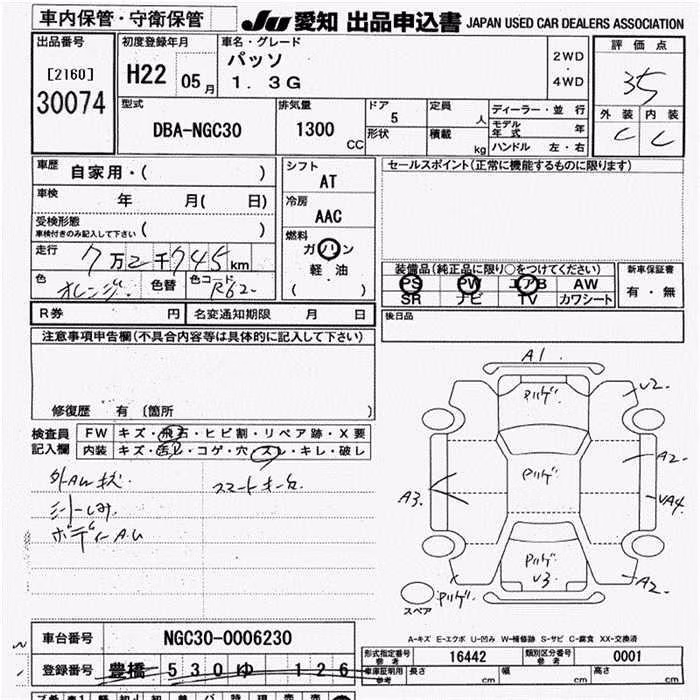 車内保管・守衛保管
JU 愛知 出品申込書 JAPAN USED CAR DEALERS ASSOCIATION
出品番号
[2160]
30074
初度登録年月
H22 05月
車名・グレード
パッソ
1.3G
2WD
・
4WD
評価点
3.5
外装 内装
C C
型式
DBA-NGC30
排気量
1300 CC
ドア 5
形状
定員 人
積載 kg
ディーラー・並行
モデル年式 年
ハンドル 左・右
車歴 自家用・( )
車検 年 月( 日)
受検形態
車検付きのみ記入して下さい ( )
走行 7万2千745km
色 オレンジ 色替 色コード R62
シフト
AT
冷房
AAC
燃料
ガソリン
軽油
( )
セールスポイント(正常に機能するものに限ります)
装備品(純正品に限り○をつけてください)
PS PW エアB AW
SR ナビ TV カワシート
新車保証書
有・無
R券 円 名変通知期限 月 日
後日品
注意事項申告欄(不具合内容等は具体的に記入して下さい)
修復歴 有〔箇所 〕
検査員記入欄
FW キズ・飛石・ヒビ割・リペア跡・X要
内装 キズ・汚レ・コゲ・穴・スレ・キレ・破レ
シートしみ
ボディーAU
スマートキー
A1
V2
A2
VA4
A2
A3
V3
スペア
A-キズ E-エクボ U-凹み W-補修跡 S-サビ C-腐食 XX-交換済
車台番号 NGC30-0006230
登録番号 豊橋 530 ゆ 126
形式指定番号 参考 16442 類別区分番号 参考 0001
車庫証明用 参考 長さ cm 幅 cm 高さ cm